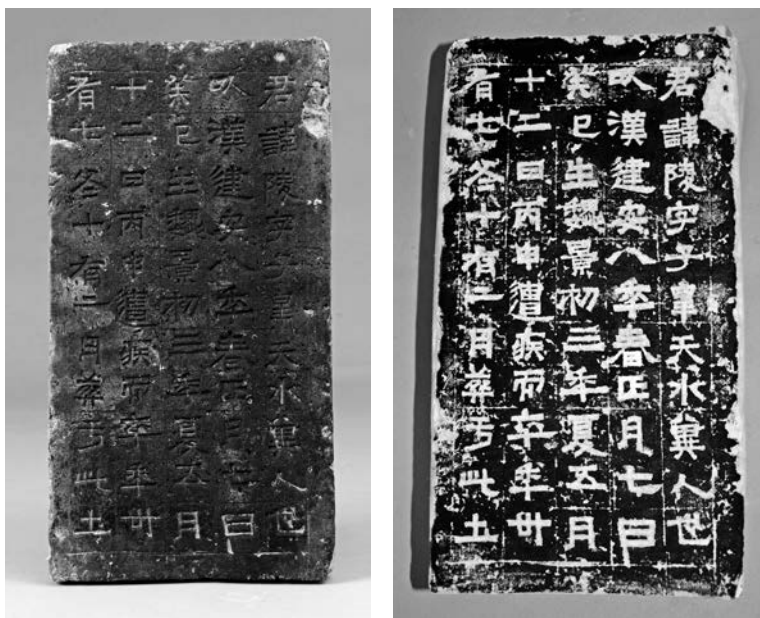 君諱陵字子皐天水冀人世
以漢建安八年春正月七日
癸巳生魏景初三年夏五月
十二日丙申遭疾而卒年卅
有七冬十有二月葬于此土
君諱陵字子皐天水冀人世
以漢建安八年春正月七日
癸巳生魏景初三年夏五月
十二日丙申遭疾而卒年卅
有七冬十有二月葬于此土